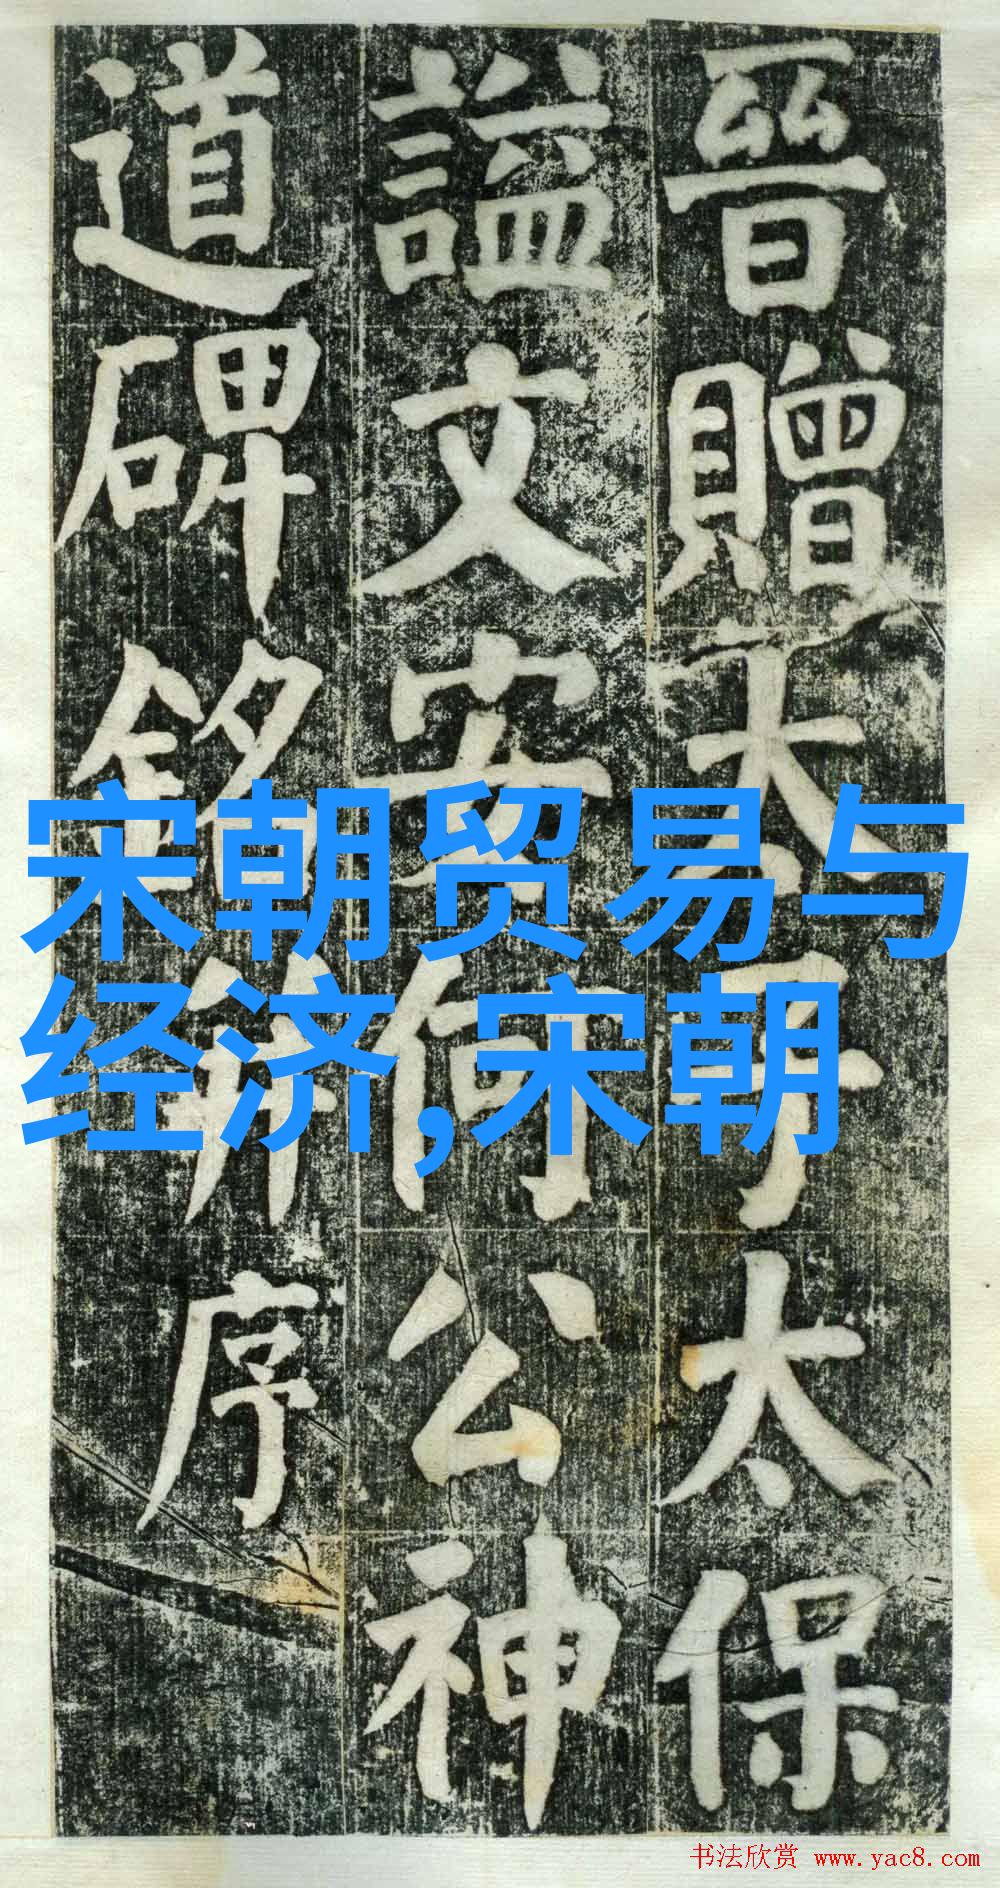 晉贈太子太保
謚文安何公神
道碑銘并序
宋朝贸易与
经济,宋朝
书法欣赏 www.yac8.com